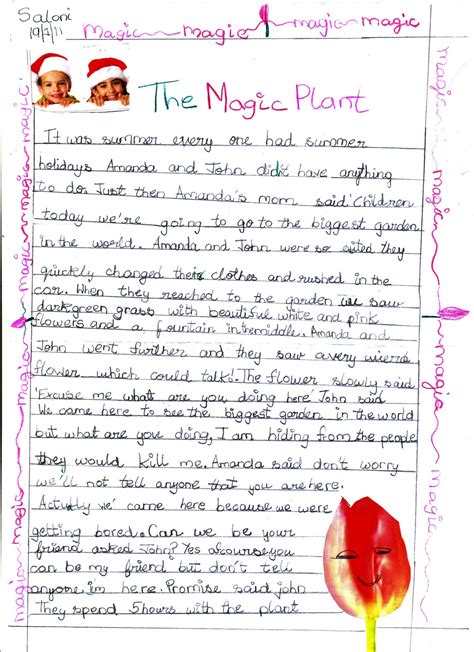 Saloni
19/7/11
Magic magic magic magic
The Magic Plant
It was summer every one had summer
holidays Amanda and John did'nt have anything
to do. Just then Amanda's mom said 'Children
today we're going to go to the biggest garden
in the world. Amanda and John were so exited they
quickly changed their clothes and rushed in the
car. When they reached to the garden we saw
darkgreen grass with beautiful white and pink
flowers and a fountain inthemiddle. Amanda and
John went further and they saw a very wierd
flower which could talk!. The flower slowly said
'Excuse me what are you doing here' John said
We came here to see the biggest garden in the world
but what are you doing, I am hiding from the people
they would kill me. Amanda said don't worry
we'll not tell anyone that you are here.
Actully we' came here because we were
getting bored. Can we be your
friend asked John? Yes afcourse you
can be my friend but don't tell
anyone. im here. Promise said john
They spend 5hours with the plant
magic
magic
magic
magic
magic
magic
magic
Magic
magic
magic
magic